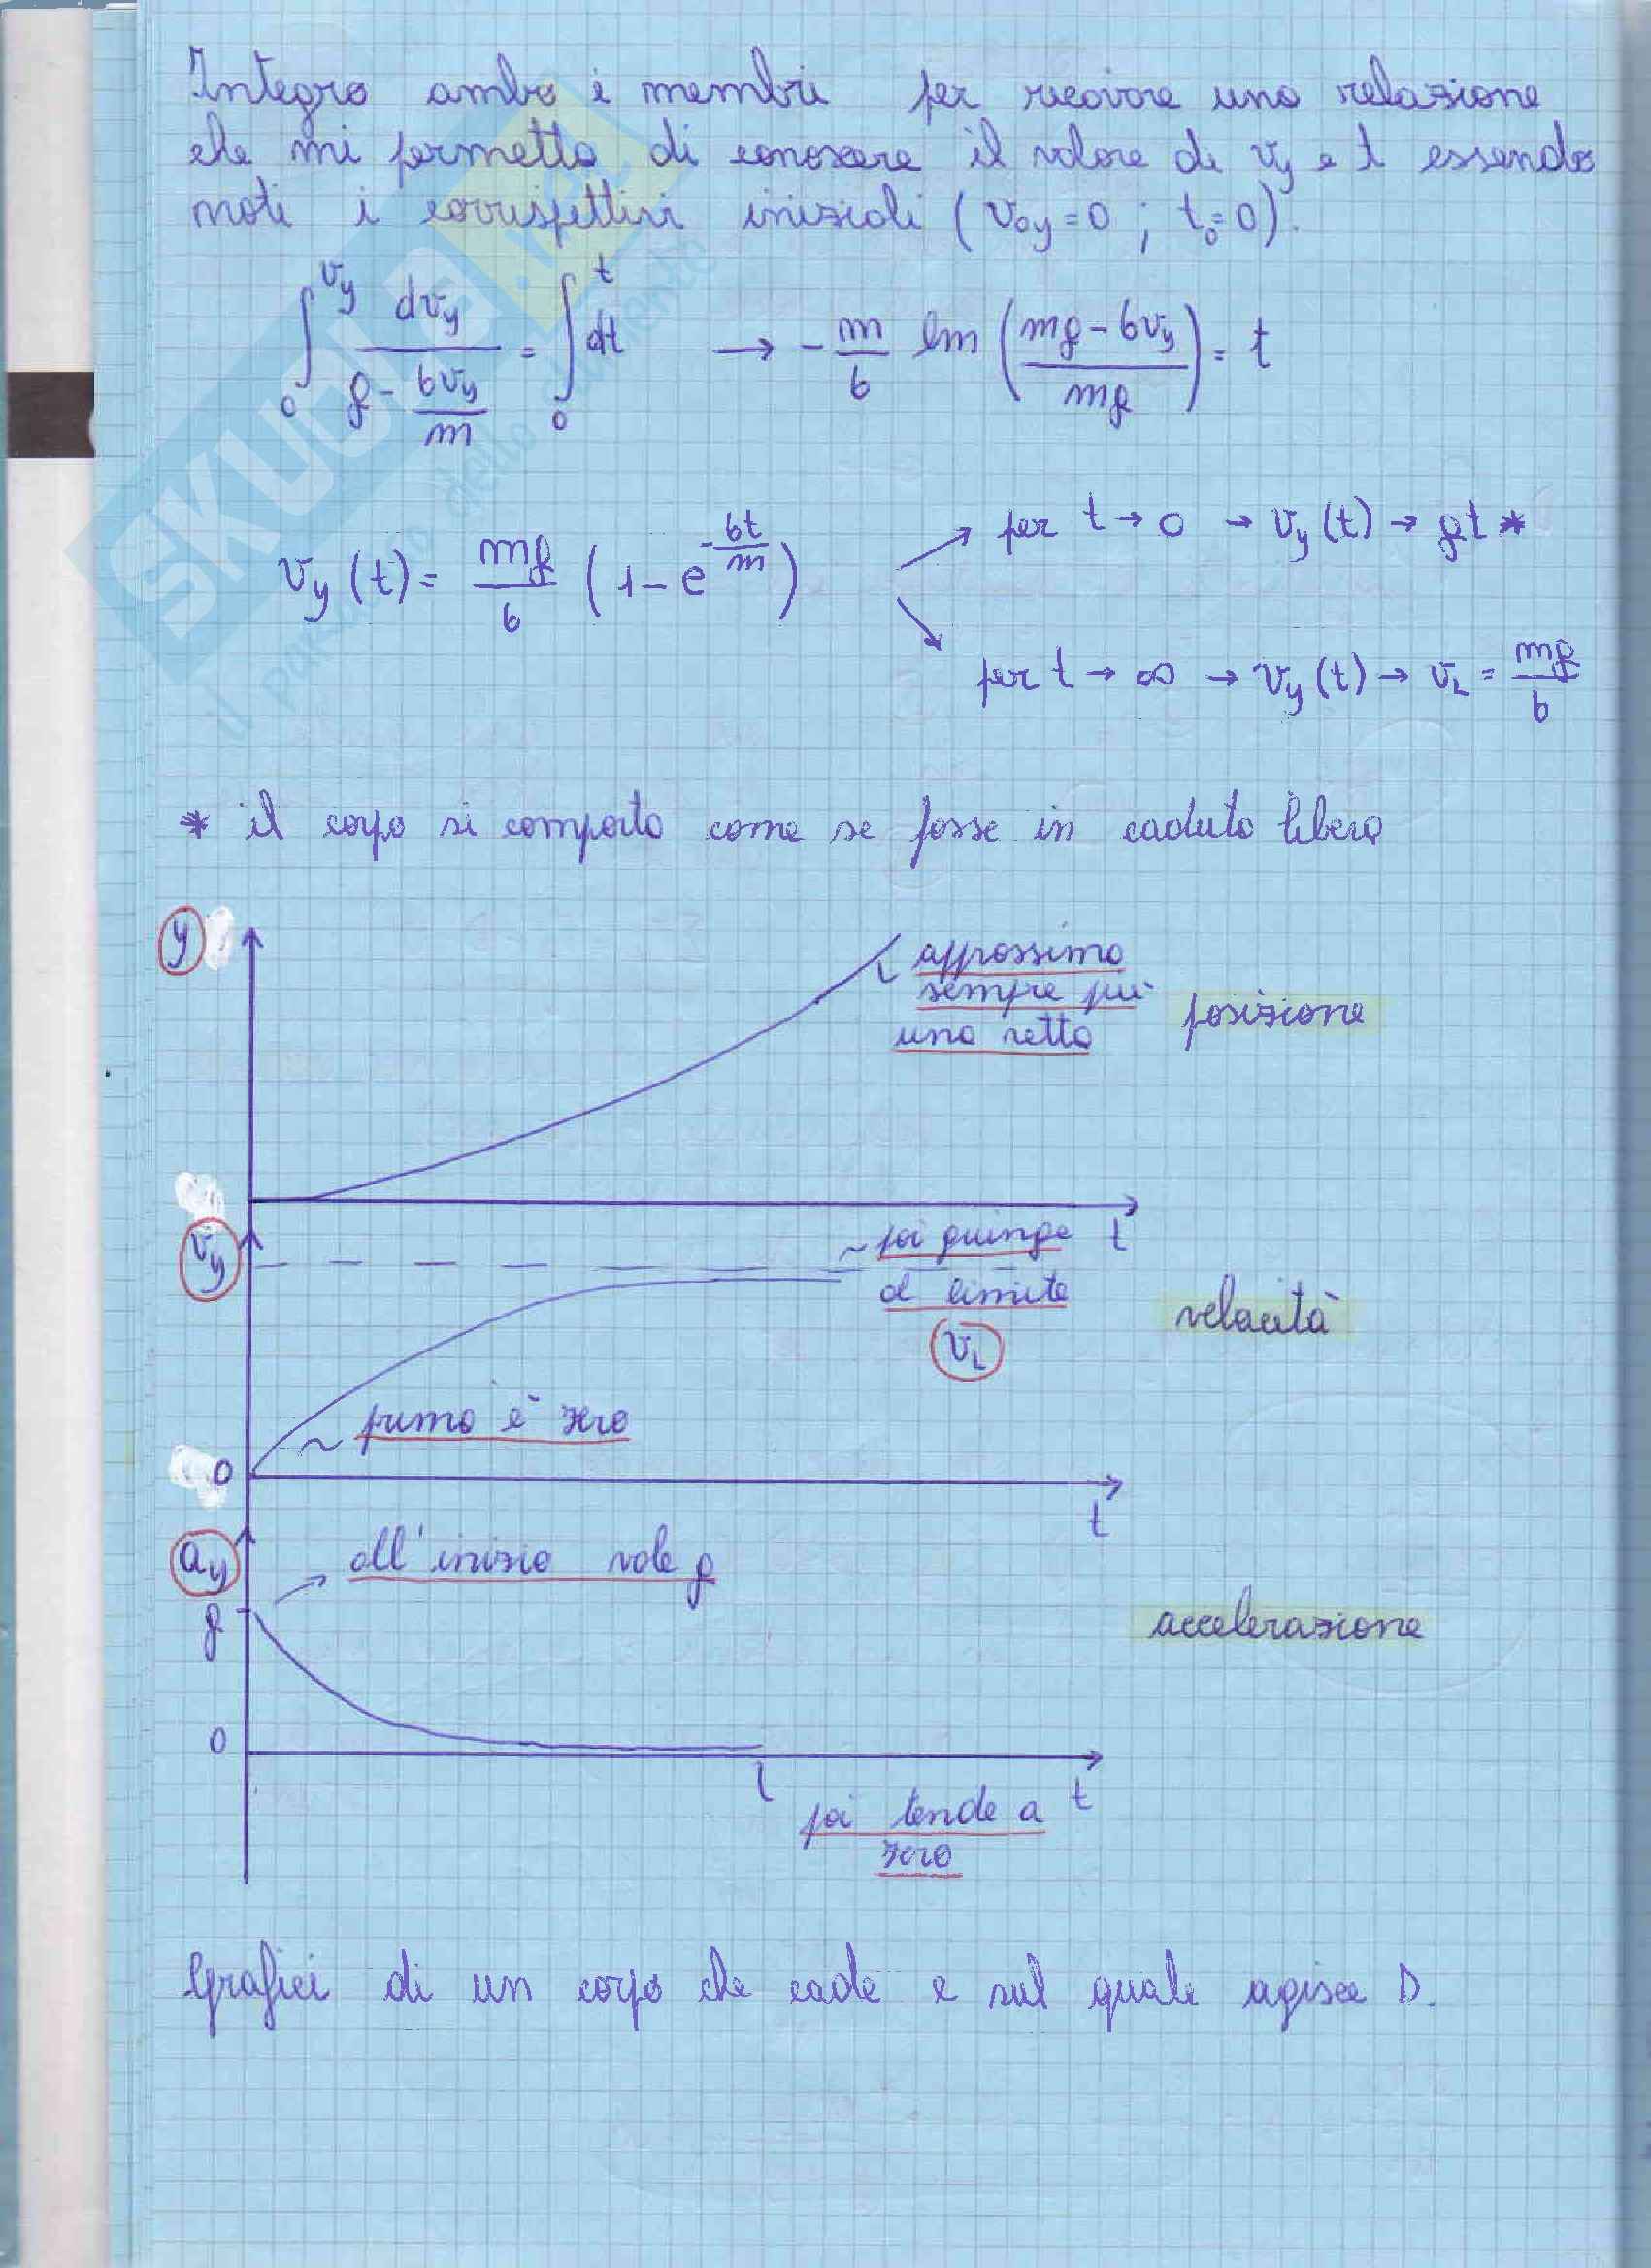 Integro ambo i membri per ricavare una relazione
che mi permetta di conoscere il valore di v_y e t essendo
noti i corrispettivi iniziali (v_0y = 0 ; t_0 = 0).
∫_0^{v_y} dv_y / (g - bv_y/m) = ∫_0^t dt → - m/b ln ((mg - bv_y)/mg) = t
per t → 0 → v_y(t) → gt *
v_y(t) = mg/b (1 - e^{-bt/m})
per t → ∞ → v_y(t) → v_L = mg/b
* il corpo si comporta come se fosse in caduta libera
y
approssima
sempre più
una retta
posizione
t
v_y
poi giunge
al limite
v_L
velocità
prima è zero
0
t
a_y
all'inizio vale g
g
accelerazione
0
t
poi tende a
zero
Grafici di un corpo che cade e sul quale agisce D.
SKUOLA.NET
il paradiso dello studente